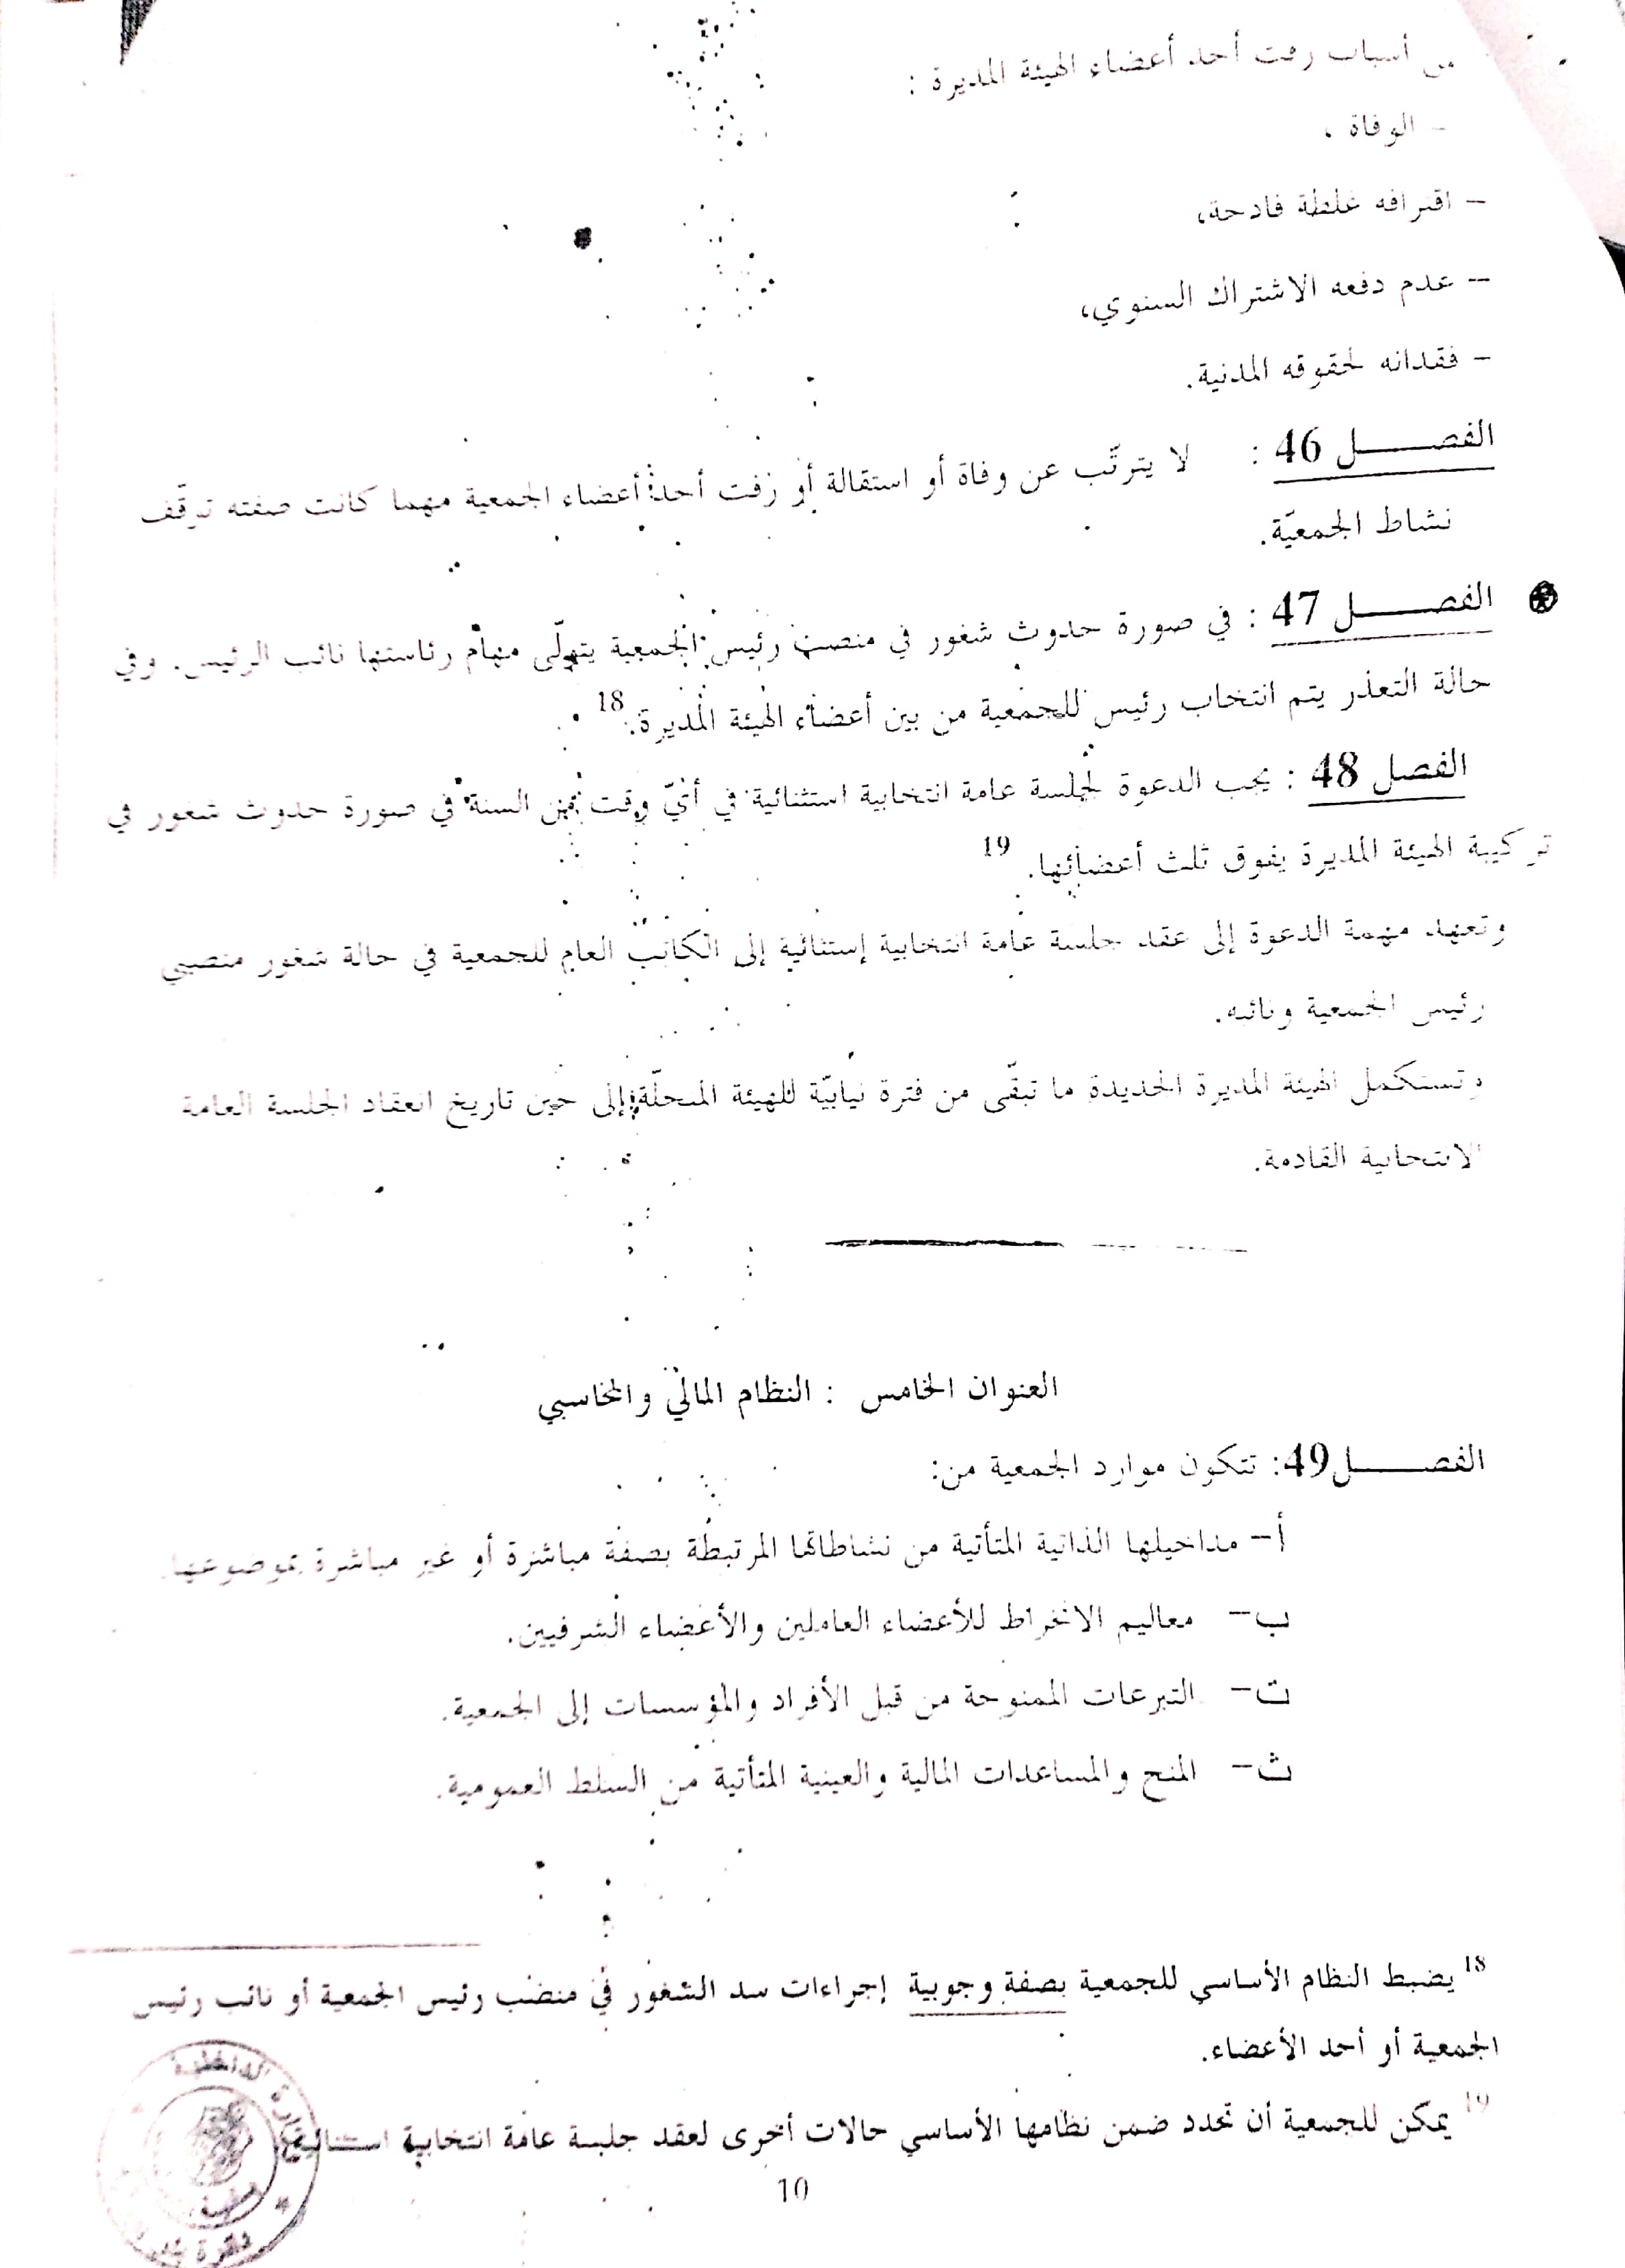 من أسباب رفت أحد أعضاء الهيئة المديرة :
– الوفاة ،
– اقترافه غلطة فادحة،
– عدم دفعه الاشتراك السنوي،
– فقدانه لحقوقه المدنية.
الفصــــل 46 : لا يترتّب عن وفاة أو استقالة أو رفت أحد أعضاء الجمعية مهما كانت صفته توقّف
نشاط الجمعيّة.
الفصــــل 47 : في صورة حدوث شغور في منصب رئيس الجمعية يتولّى مهام رئاستها نائب الرئيس. وفي
حالة التعذر يتم انتخاب رئيس للجمعية من بين أعضاء الهيئة المديرة.18
الفصل 48 : يجب الدعوة لجلسة عامة انتخابية استثنائية في أيّ وقت من السنة في صورة حدوث شغور في
تركيبة الهيئة المديرة يفوق ثلث أعضائها. 19
وتعهد مهمة الدعوة إلى عقد جلسة عامة انتخابية إستثنائية إلى الكاتب العام للجمعية في حالة شغور منصبي
رئيس الجمعية ونائبه.
وتستكمل الهيئة المديرة الجديدة ما تبقّى من فترة نيابيّة للهيئة المنحلّة إلى حين تاريخ انعقاد الجلسة العامة
الانتخابية القادمة.
العنوان الخامس : النظام المالي والمحاسبي
الفصــــل49: تتكون موارد الجمعية من:
أ– مداخيلها الذاتية المتأتية من نشاطاتها المرتبطة بصفة مباشرة أو غير مباشرة بموضوعها.
ب– معاليم الانخراط للأعضاء العاملين والأعضاء الشرفيين.
ت– التبرعات الممنوحة من قبل الأفراد والمؤسسات إلى الجمعية.
ث– المنح والمساعدات المالية والعينية المتأتية من السلط العمومية.
18 يضبط النظام الأساسي للجمعية بصفة وجوبية إجراءات سد الشغور في منصب رئيس الجمعية أو نائب رئيس
الجمعية أو أحد الأعضاء.
19 يمكن للجمعية أن تحدد ضمن نظامها الأساسي حالات أخرى لعقد جلسة عامة انتخابية استثنائية.
10
الداخلية